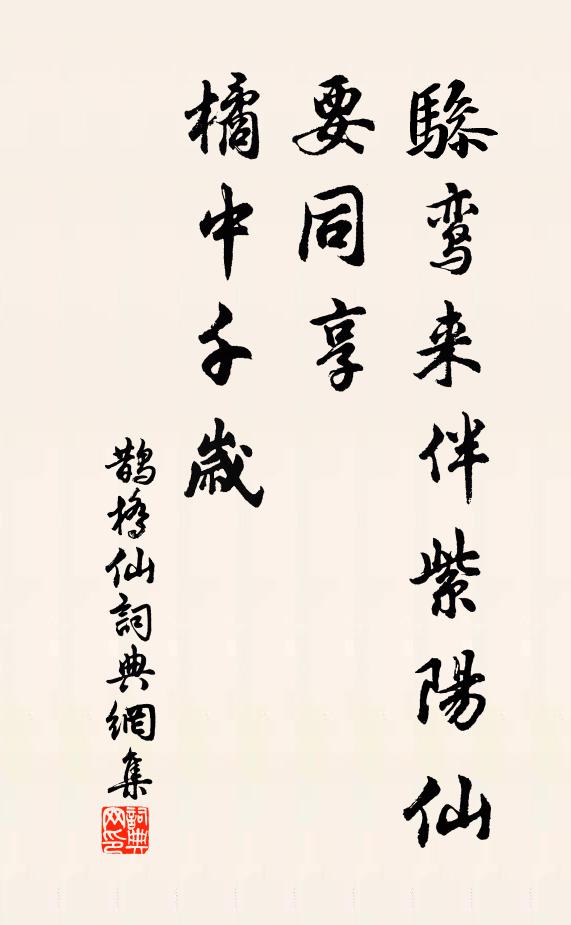 驂鸾来伴紫陽仙
要同享
橘中千歲
鵲橋仙詞典網集
詞典网印